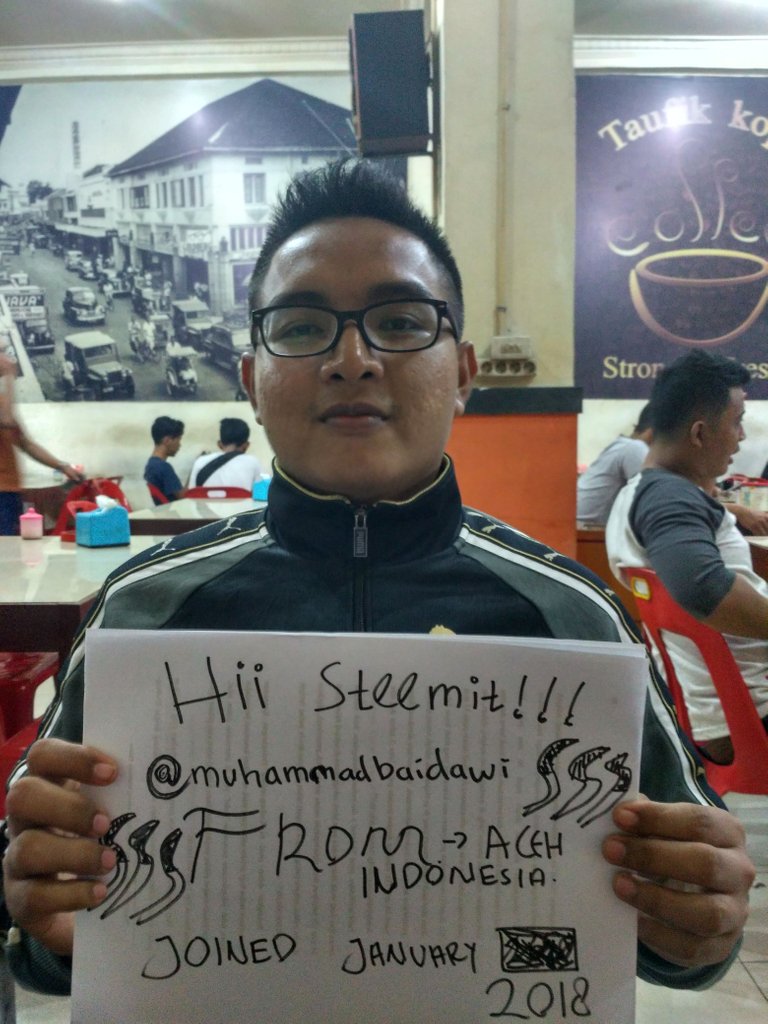 Taufik
Coffee
Hii Steemit!!!
@muhammadbaidawi
FROM → ACEH
INDONESIA.
JOINED JANUARY
2018